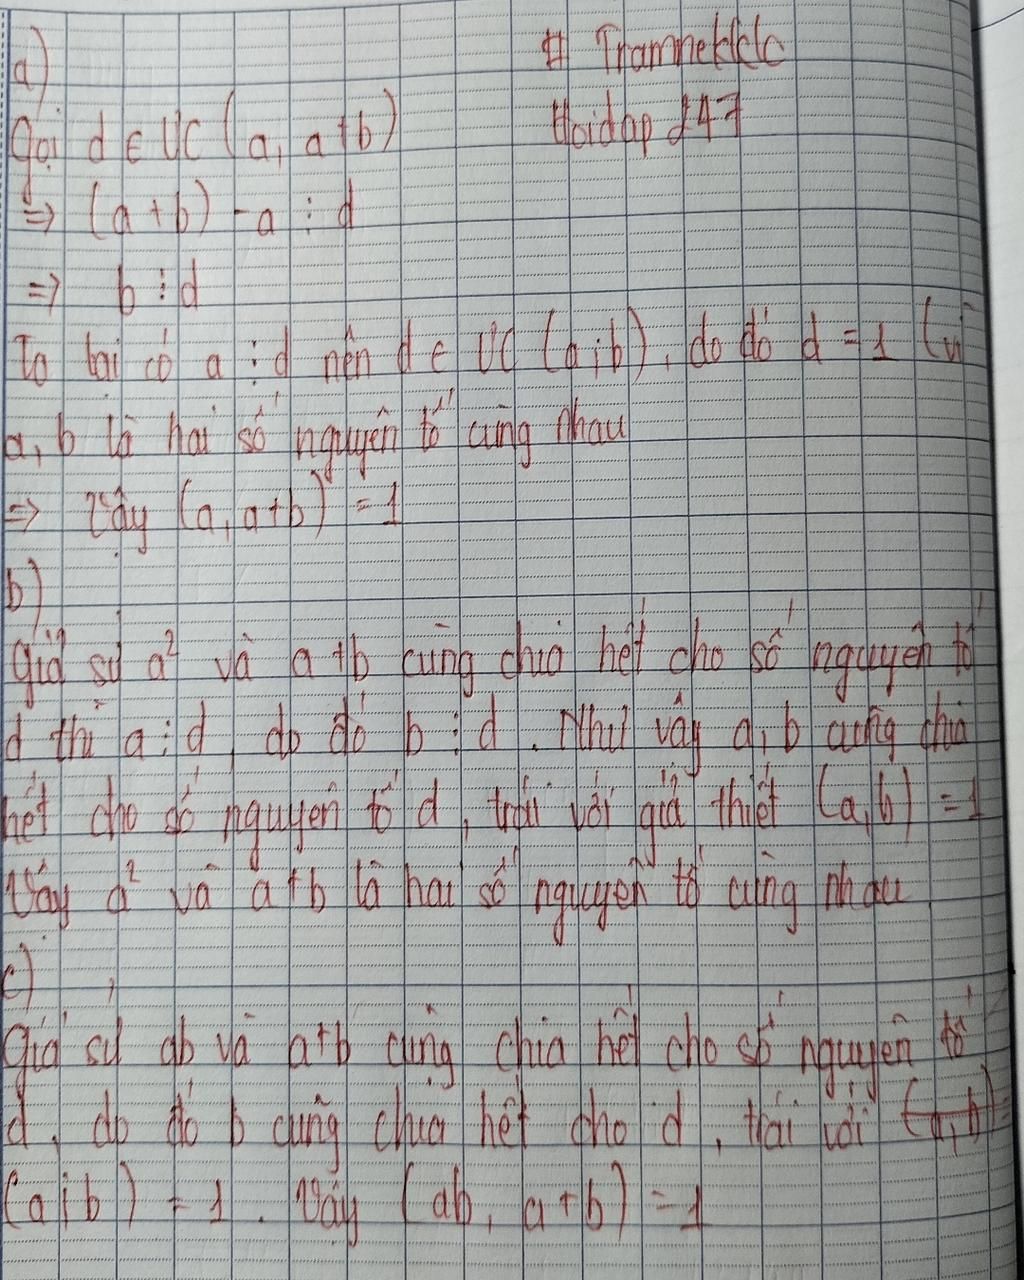 a)
# Tramnekklc
Gọi d ∈ ƯC (a, a+b)
Hoidap 247
=> (a+b) - a ⋮ d
=> b ⋮ d
Ta lại có a ⋮ d nên d ∈ ƯC (a;b), do đó d = 1 (vì
a, b là hai số nguyên tố cùng nhau
=> Vậy (a, a+b) = 1
b)
Giả sử a² và a+b cùng chia hết cho số nguyên tố
d thì a ⋮ d, do đó b ⋮ d. Như vậy a, b cùng chia
hết cho số nguyên tố d, trái với giả thiết (a,b) = 1
Vậy a² và a+b là hai số nguyên tố cùng nhau
c)
Giả sử ab và a+b cùng chia hết cho số nguyên tố
d, do đó b cũng chia hết cho d, trái với (a,b) =
(a;b) = 1. Vậy (ab, a+b) = 1